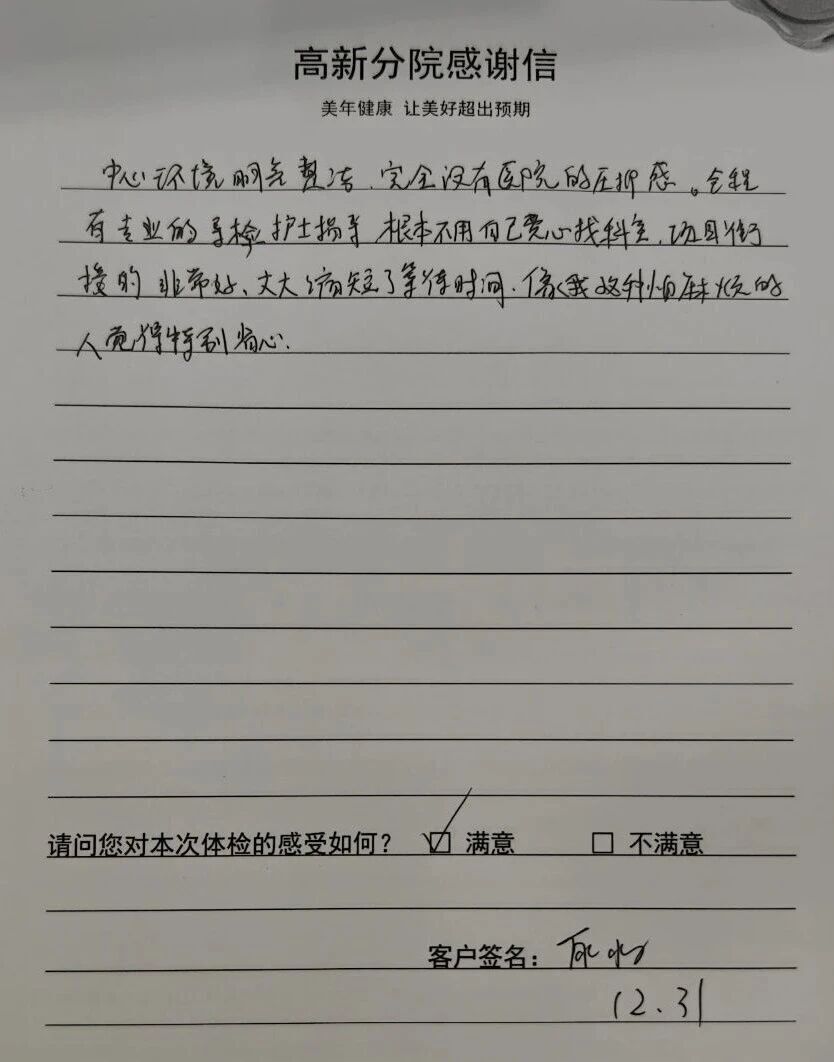 高新分院感谢信
美年健康 让美好超出预期
中心环境明亮整洁、完全没有医院的压抑感。全程
有专业的导检护士指导 根本不用自己费心找科室,项目衔
接的非常好、大大缩短了等待时间.像我这种怕麻烦的
人觉得特别省心.
请问您对本次体检的感受如何? ☑ 满意 □ 不满意
客户签名:
12.31